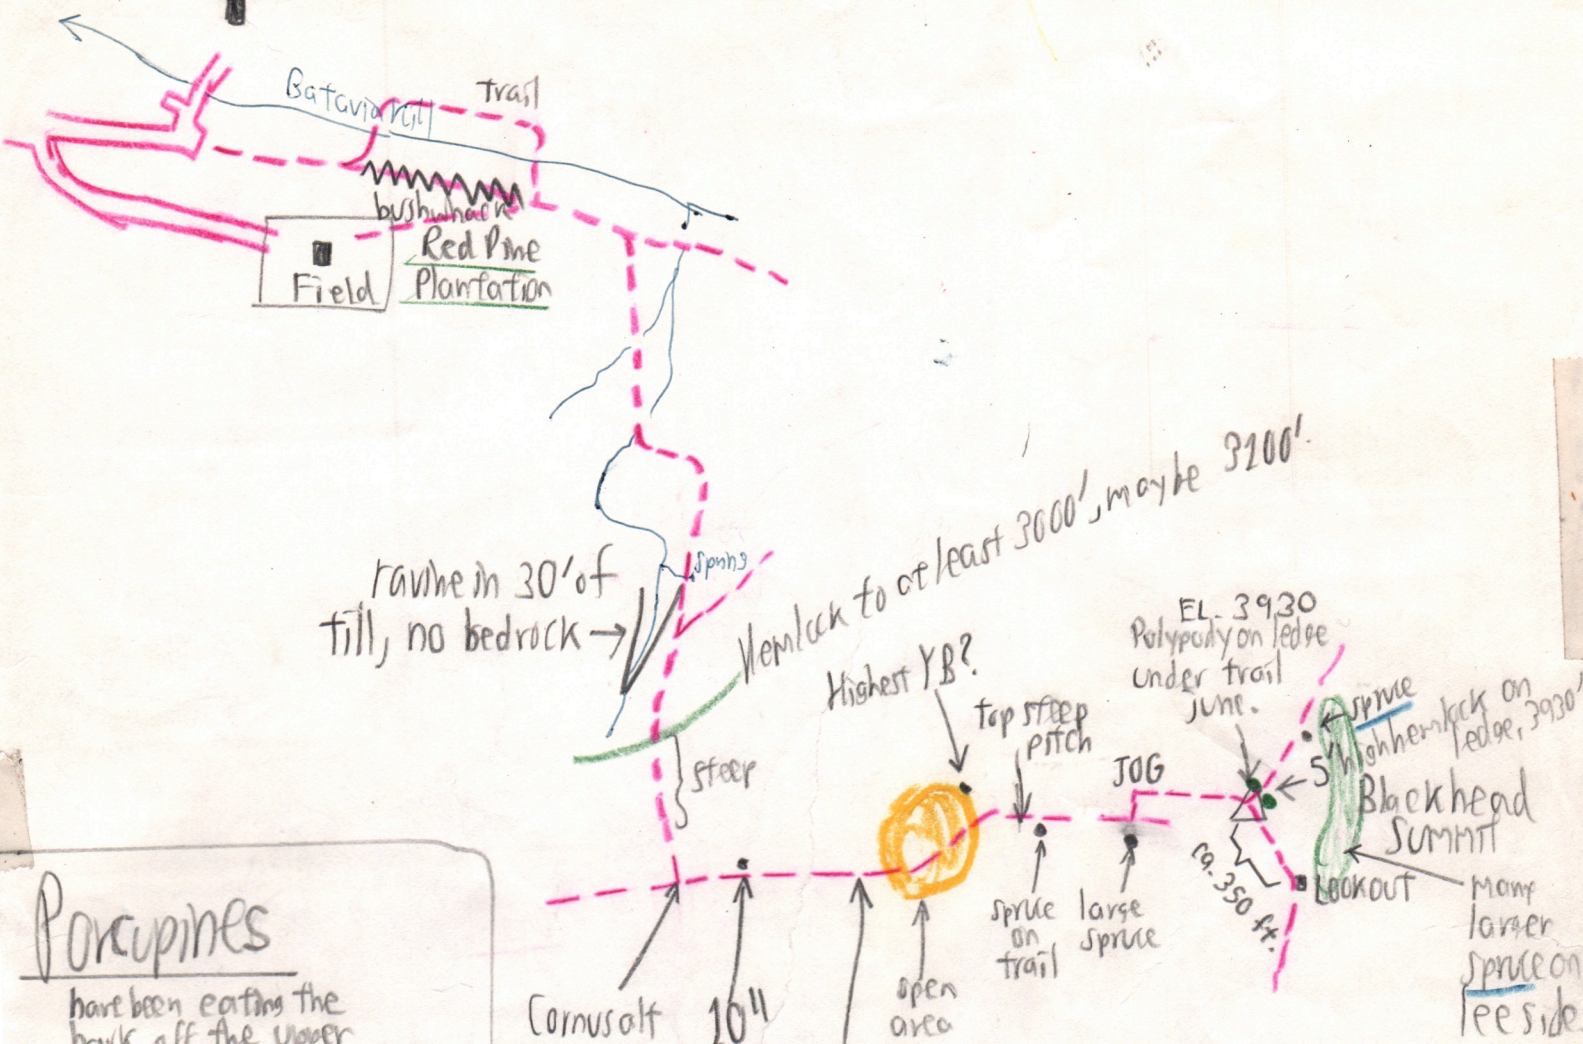 Batavia Kill
trail
bushwhack
Red Pine
Plantation
Field
Hemlock to at least 3000', maybe 3100'.
spring
ravine in 30' of
till, no bedrock
steep
Highest YB?
top steep
pitch
JOG
EL. 3930
Polypody on ledge
under trail
June.
spruce
5' high hemlock on
ledge, 3930'
Blackhead
Summit
Lookout
ca. 350 ft.
many
larger
spruce on
lee side
spruce
on
trail
large
spruce
open
area
Cornus alt
10"
Porcupines
have been eating the
bark off the upper